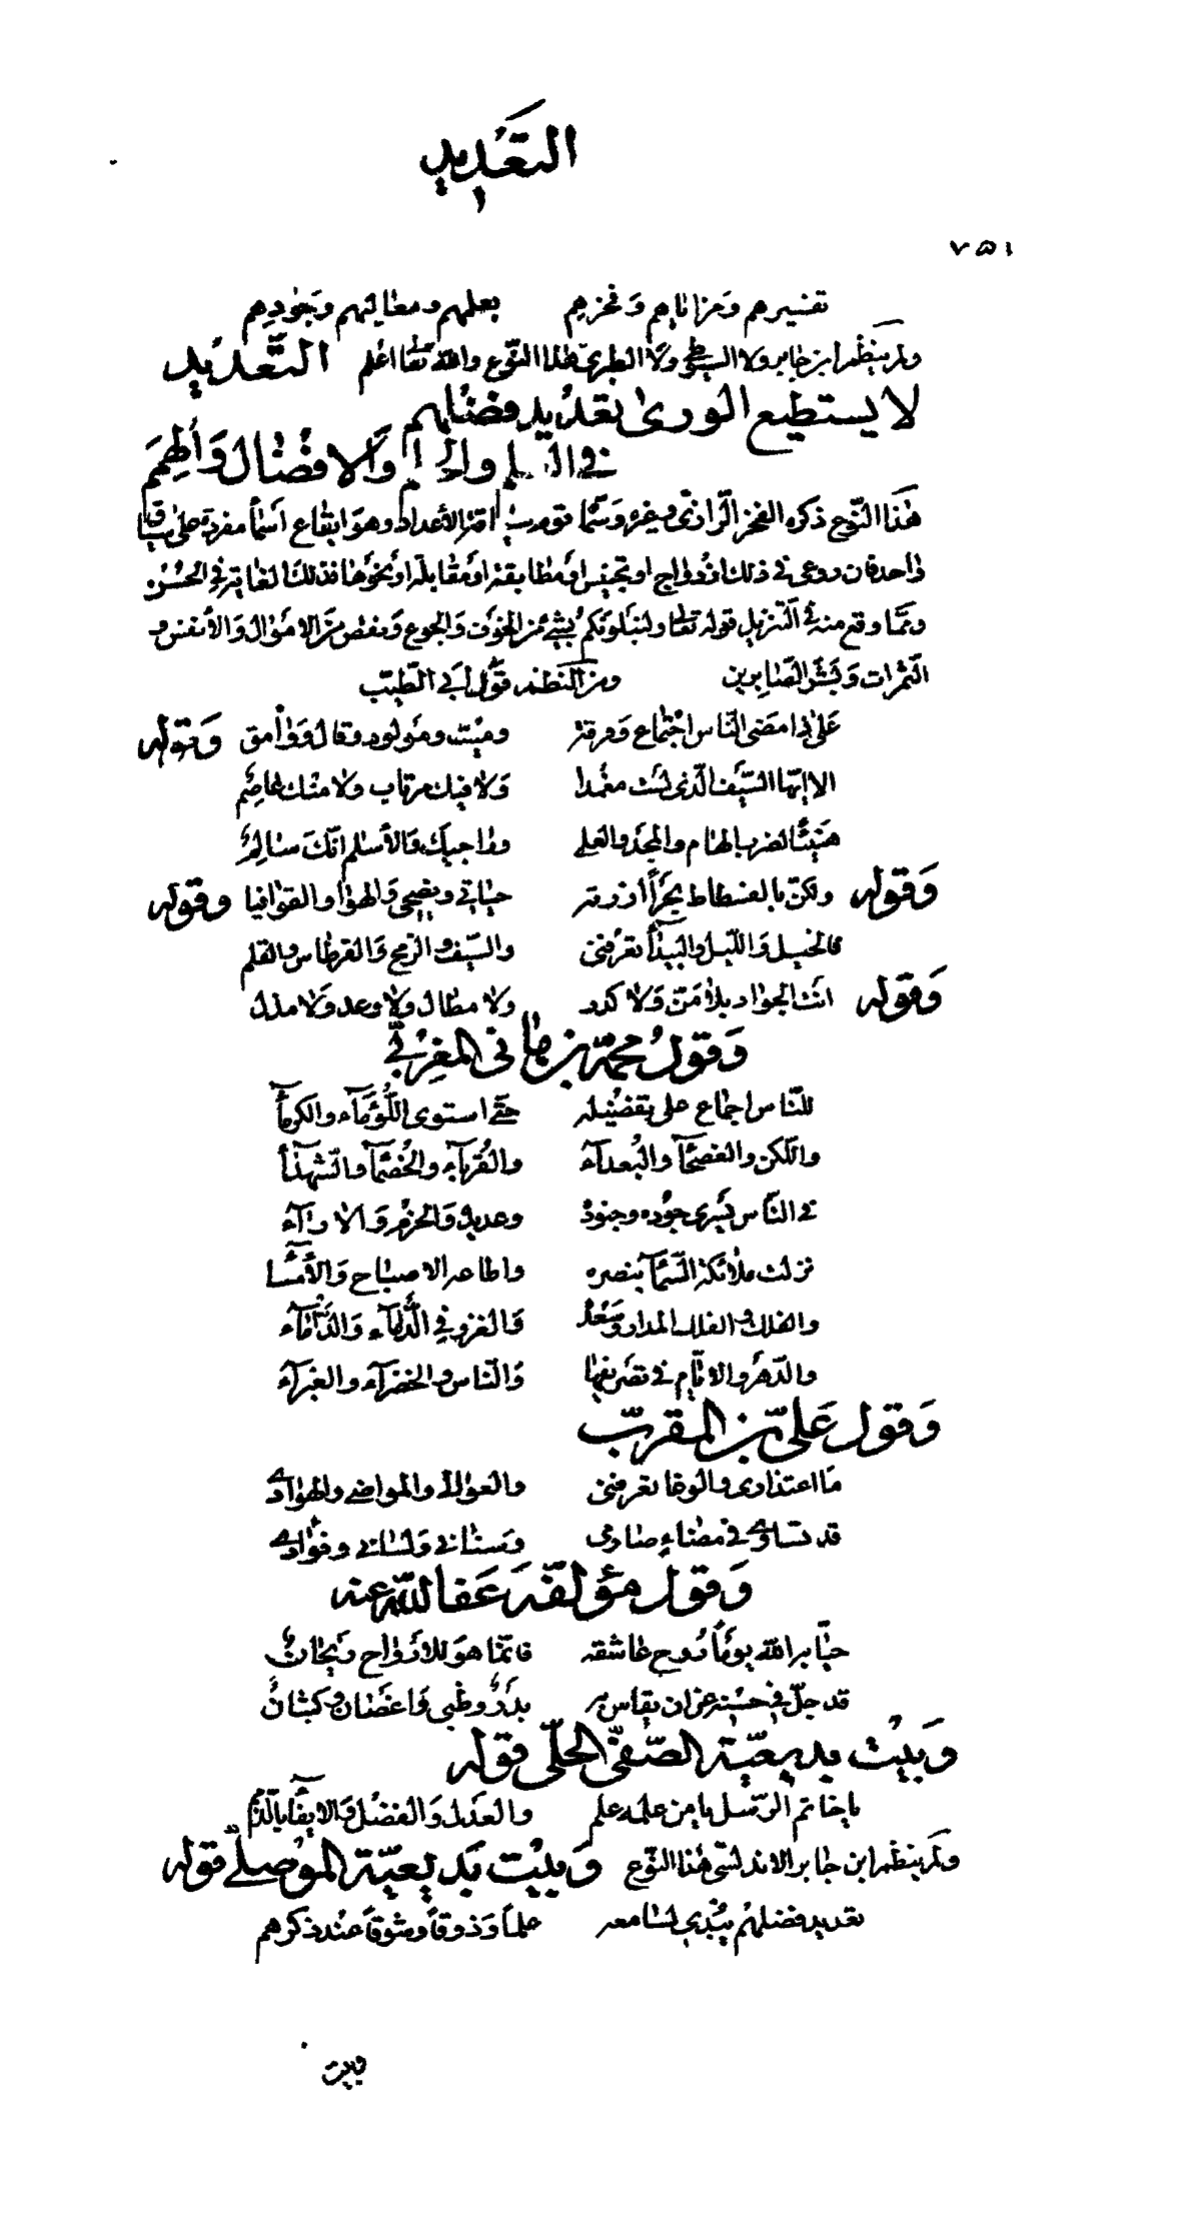 التعديد
٧٥١
تفسيرهم ومزاياهم وفخرهم بعلمهم ومعاليهم وجودهم
ولم ينظم ابن جابر ولا السيوطي ولا الطبري هذا النوع والله تعالى اعلم التعديد
لا يستطيع الورى تعديد فضلهم
في العلم والحلم والافضال والهمم
هذا النوع ذكره الفخر الرازي وغيره وسماه قوم سياقة الأعداد وهو ايقاع اسماء مفردة على سياق
واحد فان روعي في ذلك ازدواج او تجنيس او مطابقة او مقابلة او نحوها فذلك الغاية في الحسن
ومما وقع منه في التنزيل قوله تعالى ولنبلونكم بشئ من الخوف والجوع ونقص من الاموال والأنفس و
الثمرات وبشر الصابرين ومن النظم قول ابي الطيب
على ذا مضى الناس اجتماع وفرقة وميت ومولود وقال ووامق وقوله
الا ايها السيف الذي لست مغمدا ولا فيك مرتاب ولا منك عاصم
هنيئا لضرب الهام والمجد والعلى وراجيك والأسلم انك سالم
وقوله ولكن بالفسطاط بحرا ازرته حياتي ونصحي والهوى والقوافيا وقوله
فالخيل والليل والبيداء تعرفني والسيف والرمح والقرطاس والقلم
وقوله انت الجواد بلا من ولا كدر ولا مطال ولا وعد ولا مذل
وقول محمد بن هاني المغربي
للناس اجماع على تفضيله حتى استوى اللؤماء والكرماء
واللكن والفصحاء والبعداء والقرباء والخصماء والشهداء
في الناس يسري جوده وجنوده وعديله والحزم والاراء
نزلت ملائكة السماء بنصره واطاعه الاصباح والأمساء
والفلك والفلك المدار وسعده والغزو في الدأماء والدأماء
والدهر والايام في تصريفها والناس والخضراء والغبراء
وقول علي بن المقرب
ما اعتذاري والوغا تعرفني والعوالي والمواضي والهوادي
قد تساوى في مضاء صارمي وسناني ولساني وفؤادي
وقول مؤلفه عفا الله عنه
حيا به الله يوما روح عاشقه فانما هو للارواح ريحان
قد جل في حسنه عن ان يقاس به بدر وظبي واغصان وكثبان
وبيت بديعية الصفي الحلي قوله
يا خاتم الرسل يا من علمه علم والعدل والفضل والايفاء بالذمم
ولم ينظم ابن جابر الاندلسي هذا النوع وبيت بديعية الموصلي قوله
تعديد فضلهم يبدي لسامعه علما وذوقا وشوقا عند ذكرهم
وبيت